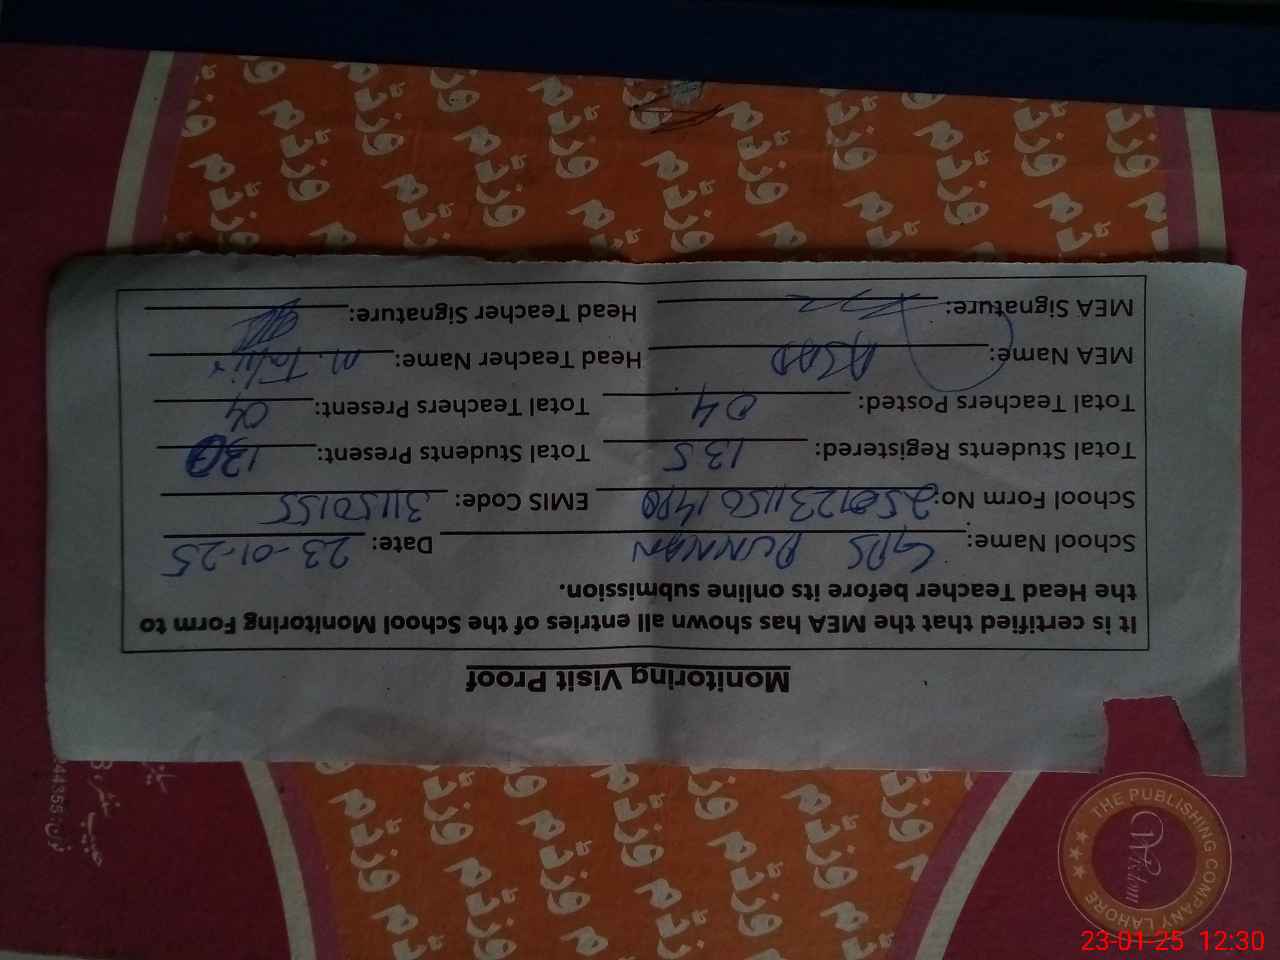 Monitoring Visit Proof
It is certified that the MEA has shown all entries of the School Monitoring Form to
the Head Teacher before its online submission.
School Name: GPS PUNNAN Date: 23-01-25
School Form No: EMIS Code: 31150155
Total Students Registered: 135 Total Students Present: 130
Total Teachers Posted: 04 Total Teachers Present: 04
MEA Name: ASAD Head Teacher Name: M. Tahir
MEA Signature: Head Teacher Signature:
THE PUBLISHING COMPANY LAHORE
Wisdom
وزڈم
23-01-25 12:30